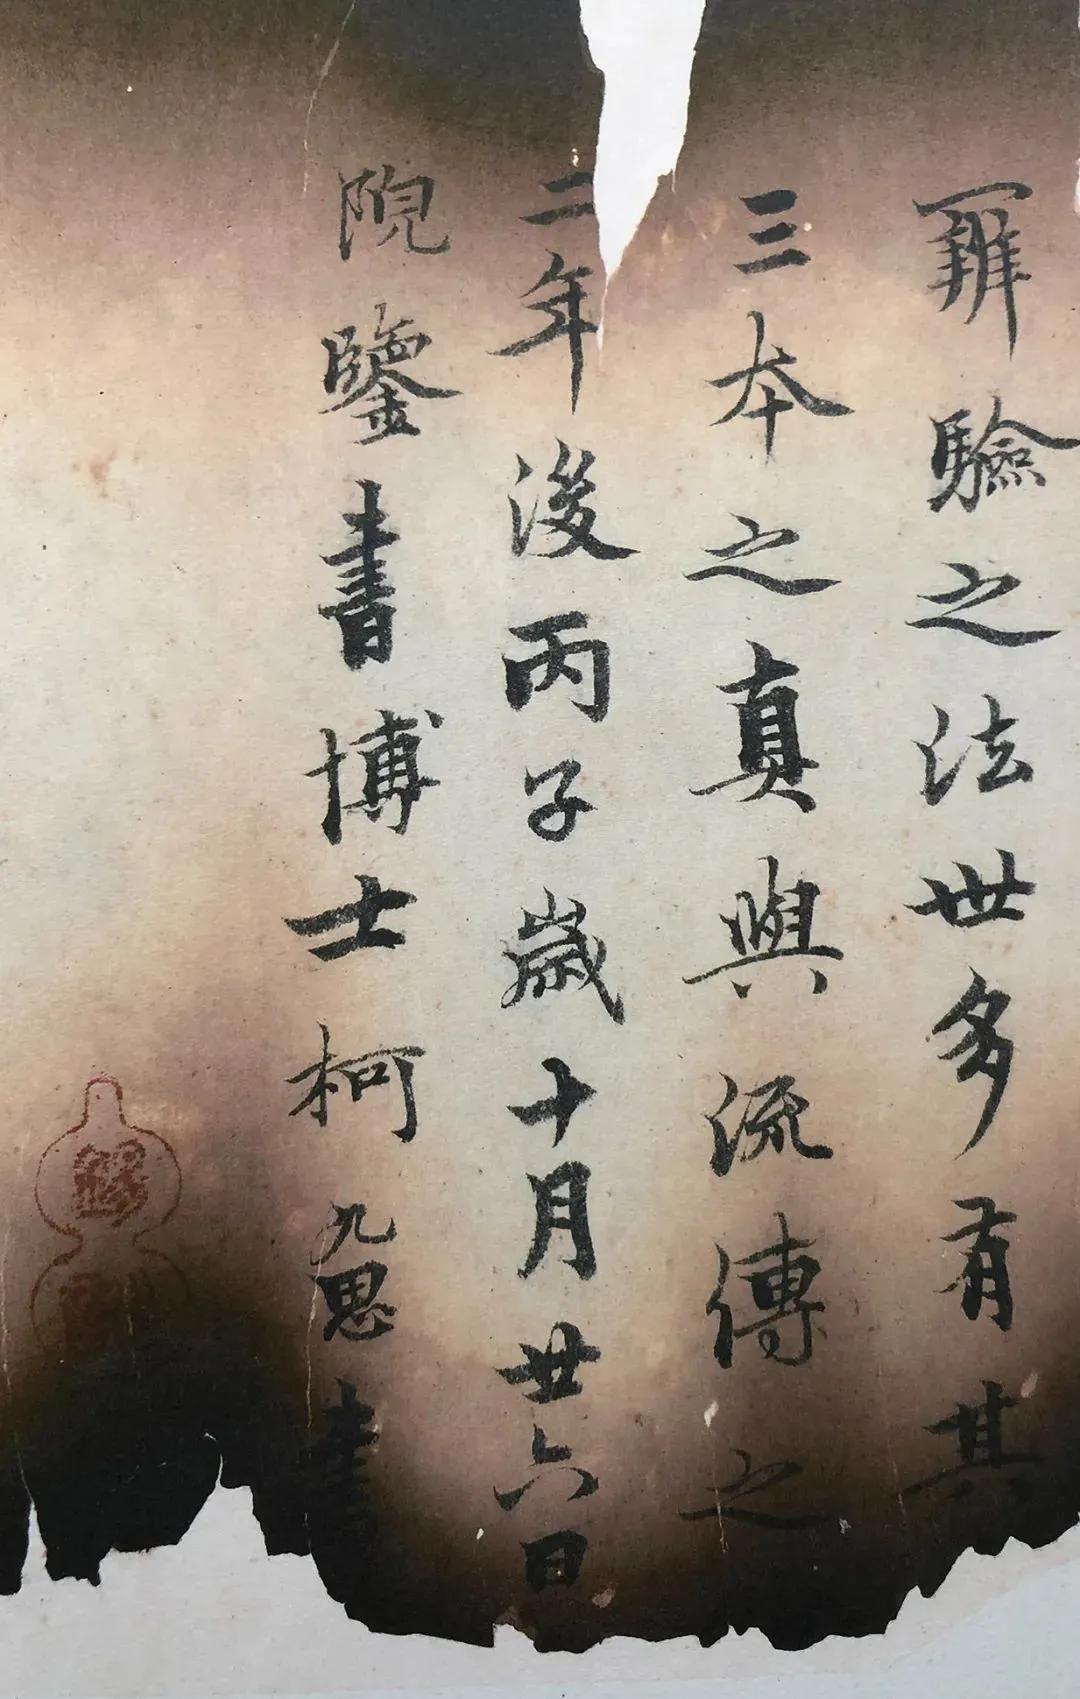 驗之法世多有其
三本之真與流傳之
二年後丙子歲十月廿六日
鑒書博士柯九思書